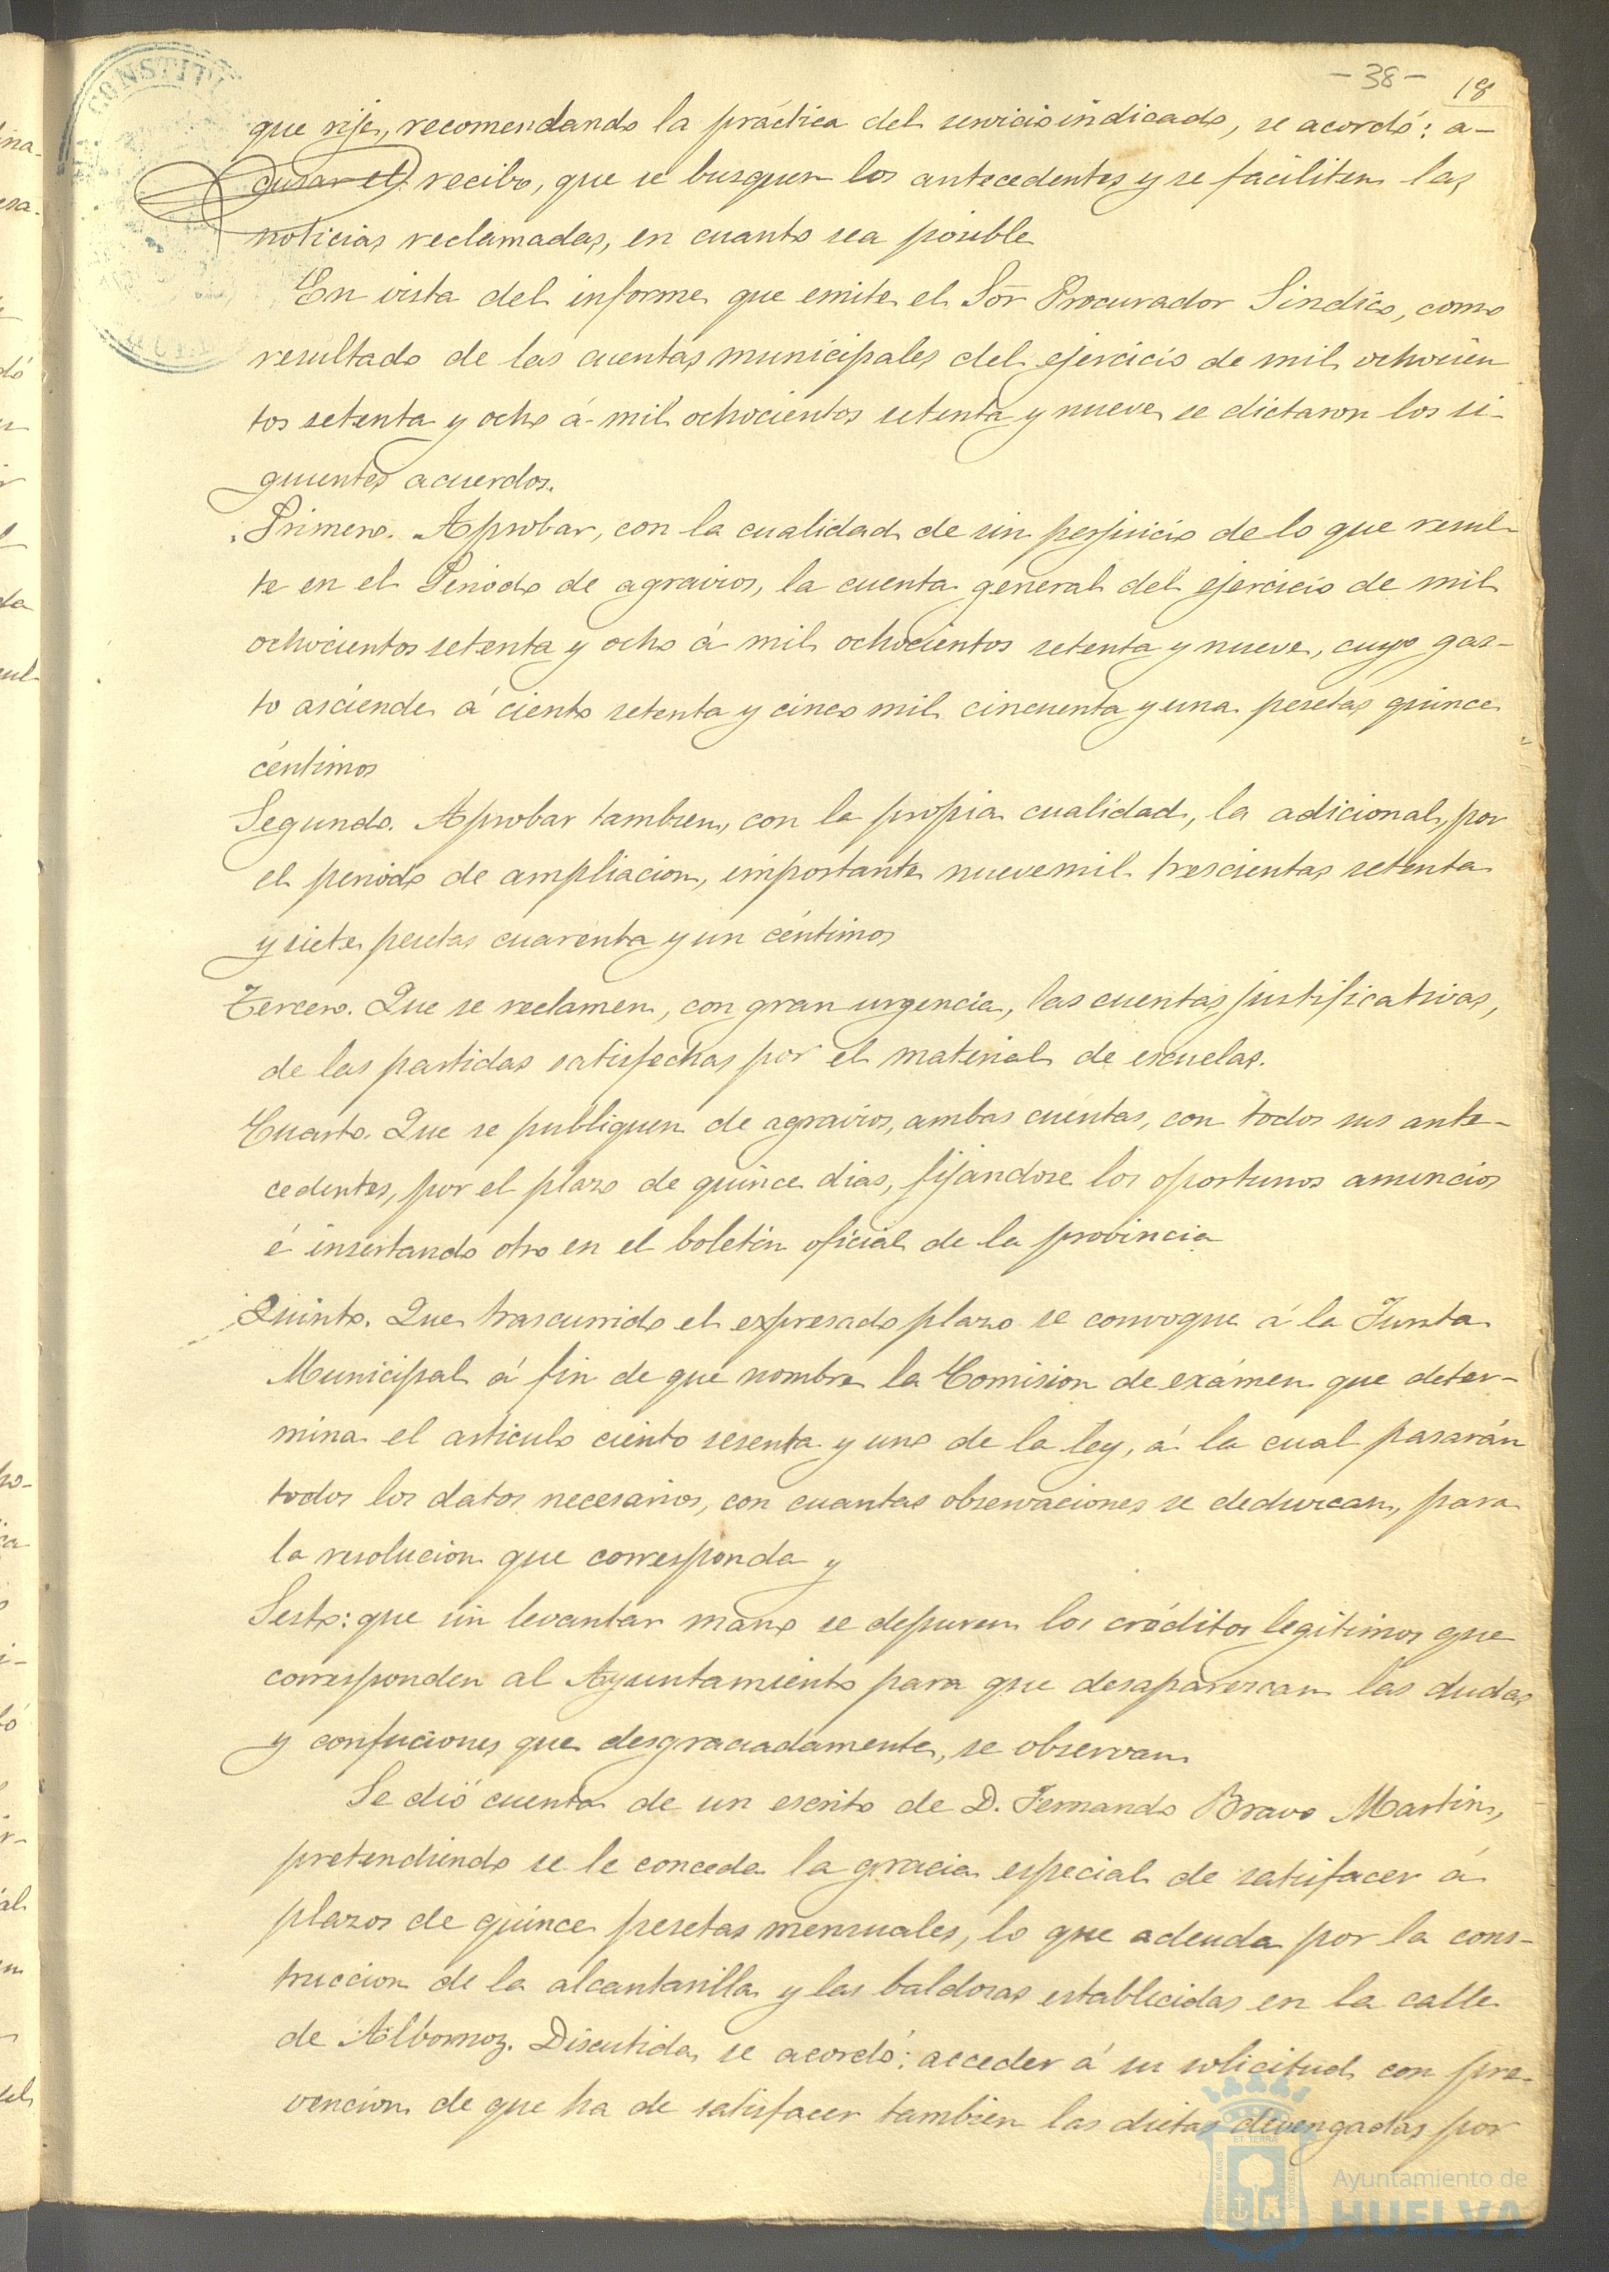 -38- 18
CONSTITU
que rije, recomendando la práctica del servicio indicado, se acordó: a-
cusar el recibo, que se busquen los antecedentes y se faciliten las
noticias reclamadas, en cuanto sea posible
En vista del informe que emite el Sor Procurador Sindico, como
resultado de las cuentas municipales del ejercicio de mil ochocien
tos setenta y ocho á mil ochocientos setenta y nueve se dictaron los si-
guientes acuerdos.
Primero. Aprobar, con la cualidad de sin perjuicio de lo que resul-
te en el Periodo de agravios, la cuenta general del ejercicio de mil
ochocientos setenta y ocho á mil ochocientos setenta y nueve, cuyo gas-
to asciende á ciento setenta y cinco mil cincuenta y una pesetas quince
céntimos
Segundo. Aprobar tambien, con la propia cualidad, la adicional, por
el periodo de ampliacion, importante nueve mil trescientas setenta
y siete pesetas cuarenta y un céntimos
Tercero. Que se reclamen, con gran urgencia, las cuentas justificativas,
de las partidas satisfechas por el material de escuelas.
Cuarto. Que se publiquen de agravios, ambas cuentas, con todos sus ante-
cedentes, por el plazo de quince dias, fijandose los oportunos anuncios
é insertando otro en el boletin oficial de la provincia
Quinto. Que trascurrido el expresado plazo se convoque á la Junta
Municipal á fin de que nombre la Comision de exámen que deter-
mina el articulo ciento sesenta y uno de la ley, á la cual pasarán
todos los datos necesarios, con cuantas observaciones se deduzcan, para
la resolucion que corresponda y
Sesto: que sin levantar mano se depuren los créditos legitimos que
corresponden al Ayuntamiento para que desaparezcan las dudas
y confuciones que desgraciadamente, se observan
Se dió cuenta de un escrito de D. Fernando Bravo Martin,
pretendiendo se le conceda la gracia especial de satisfacer á
plazos de quince pesetas mensuales, lo que adeuda por la cons-
truccion de la alcantarilla y las baldosas establecidas en la calle
de Albornoz. Discutida, se acordó: acceder á su solicitud con pre-
vencion de que ha de satisfacer tambien las dietas devengadas por
Ayuntamiento de
HUELVA